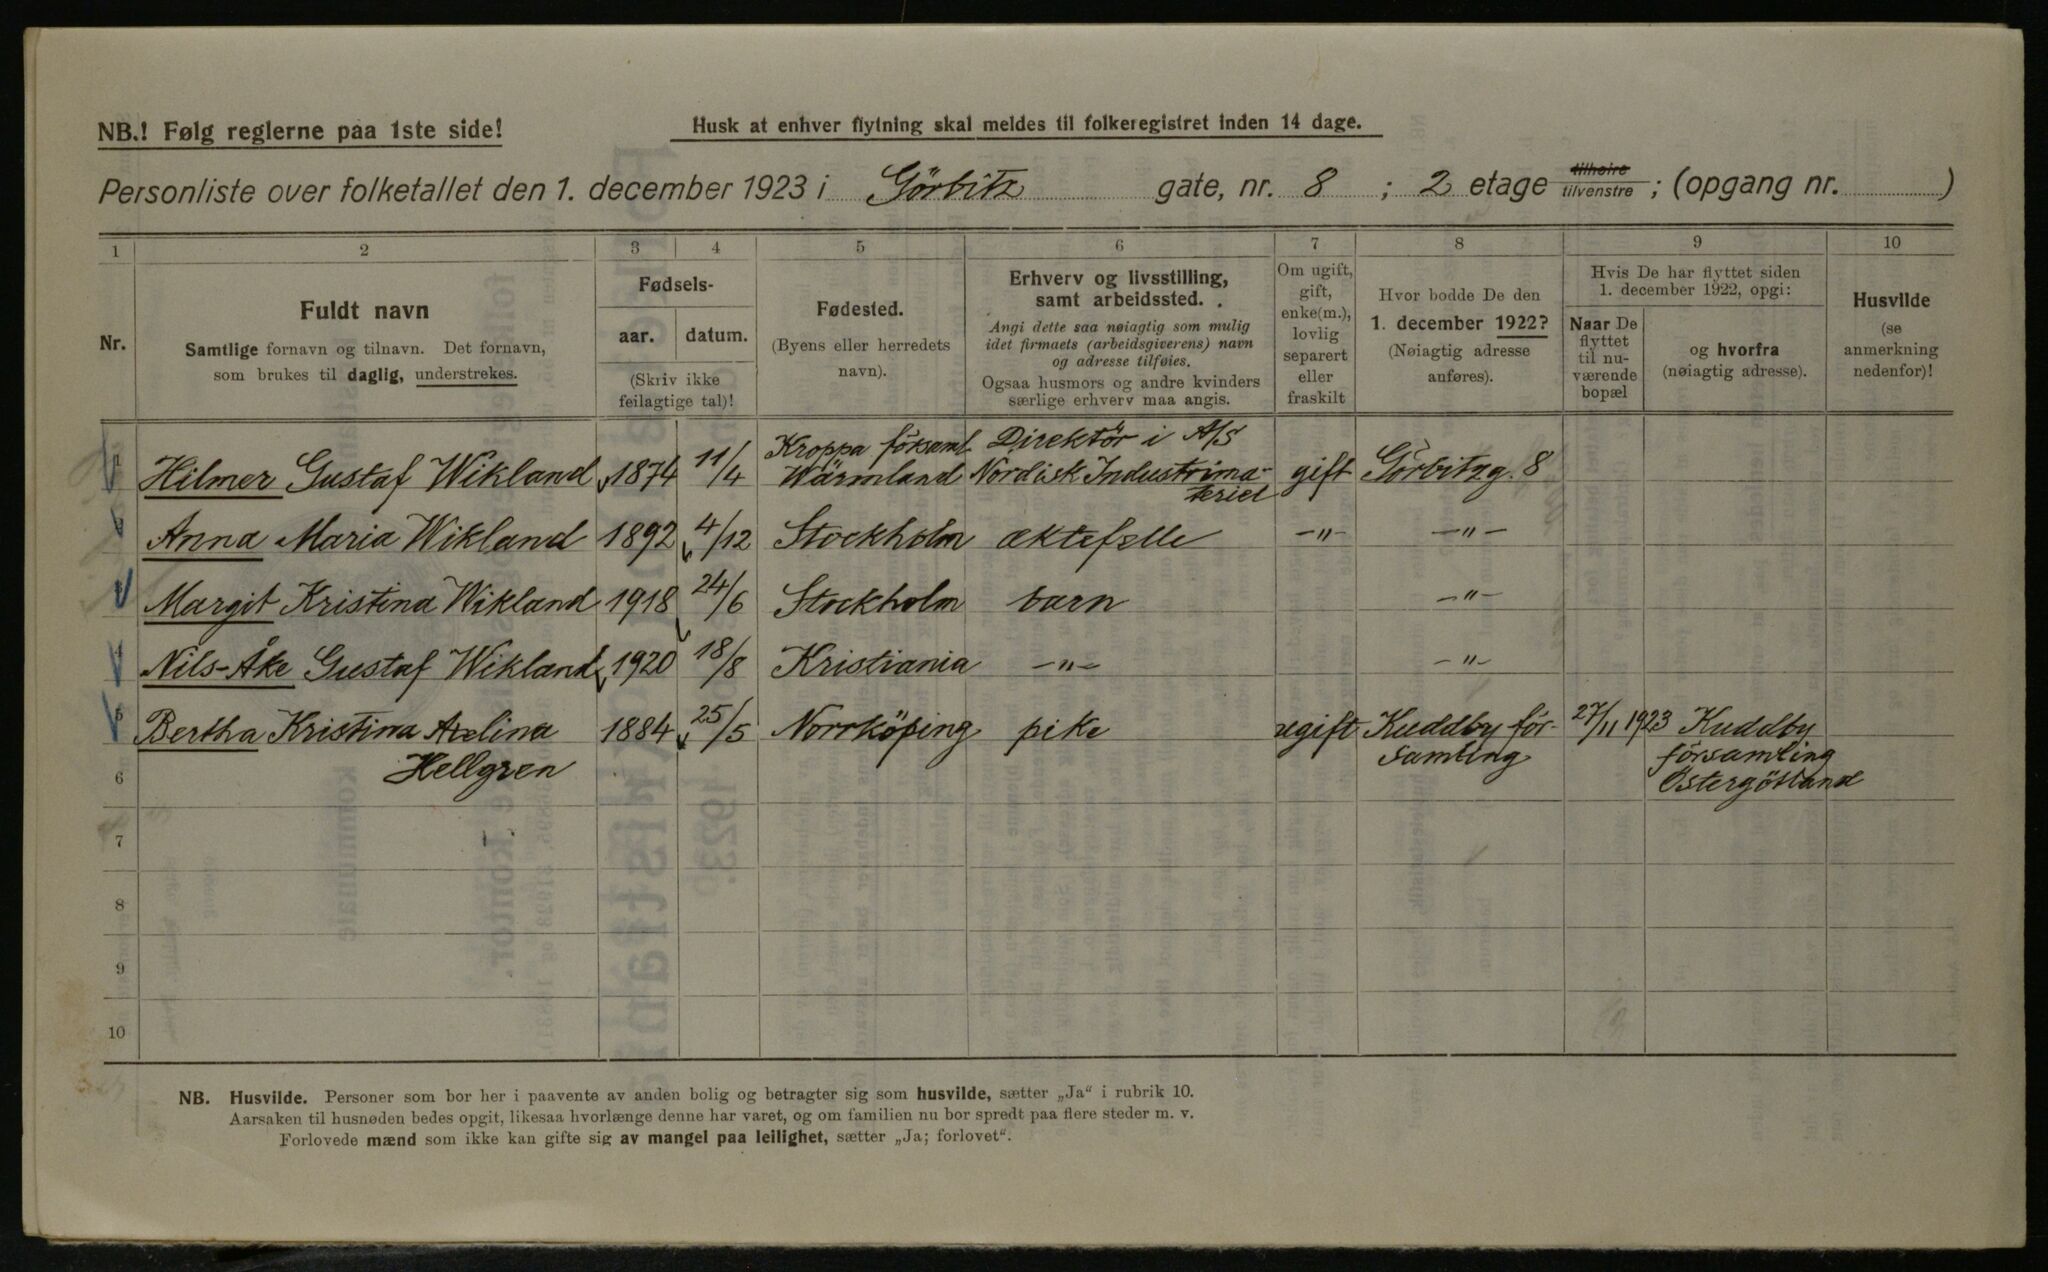 NB.! Følg reglerne paa 1ste side!
Husk at enhver flytning skal meldes til folkeregistret inden 14 dage.
Personliste over folketallet den 1. december 1923 i Görbitz gate, nr. 8 ; 2 etage tilhøire tilvenstre ; (opgang nr. )
1 2 3 4 5 6 7 8 9 10
Nr.
Fuldt navn
Samtlige fornavn og tilnavn. Det fornavn,
som brukes til daglig, understrekes.
Fødsels-
aar. datum.
(Skriv ikke
feilagtige tal)!
Fødested.
(Byens eller herredets
navn).
Erhverv og livsstilling,
samt arbeidssted.
Angi dette saa nøiagtig som mulig
idet firmaets (arbeidsgiverens) navn
og adresse tilføies.
Ogsaa husmors og andre kvinders
særlige erhverv maa angis.
Om ugift,
gift,
enke(m.),
lovlig
separert
eller
fraskilt
Hvor bodde De den
1. december 1922?
(Nøiagtig adresse
anføres).
Hvis De har flyttet siden
1. december 1922, opgi:
Naar De
flyttet
til nu-
værende
bopæl
og hvorfra
(nøiagtig adresse).
Husvilde
(se
anmerkning
nedenfor)!
1 Hilmer Gustaf Wikland 1874 11/4 Kroppa församl Wärmland Direktör i A/S Nordisk Industrima- teriel gift Görbitzg. 8
2 Anna Maria Wikland 1892 4/12 Stockholm æktefelle -"- -"-
3 Margit Kristina Wikland 1918 24/6 Stockholm barn -"-
4 Nils-Åke Gustaf Wikland 1920 18/8 Kristiania -"- -"-
5 Bertha Kristina Axelina 1884 25/5 Norrköping pike ugift Kuddby för- 27/11 1923 Kuddby
6 Hellgren samling församling
Östergötland
7
8
9
10
NB. Husvilde. Personer som bor her i paavente av anden bolig og betragter sig som husvilde, sætter „Ja“ i rubrik 10.
Aarsaken til husnøden bedes opgit, likesaa hvorlænge denne har varet, og om familien nu bor spredt paa flere steder m. v.
Forlovede mænd som ikke kan gifte sig av mangel paa leilighet, sætter „Ja; forlovet“.